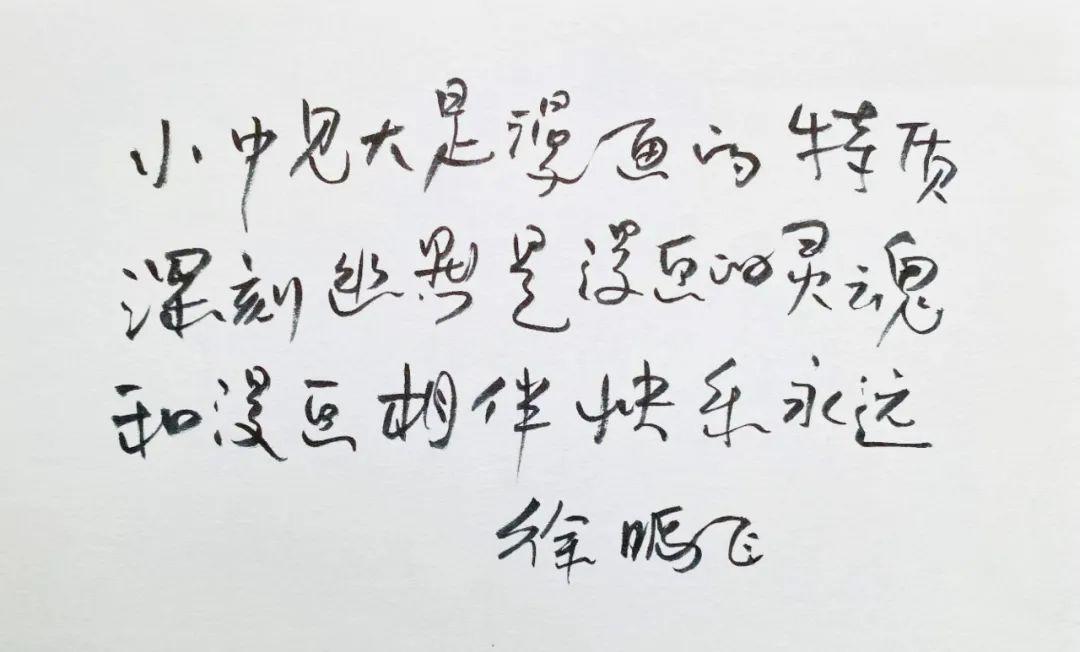 小中见大是漫画的特质
深刻幽默是漫画的灵魂
和漫画相伴快乐永远
徐鹏飞